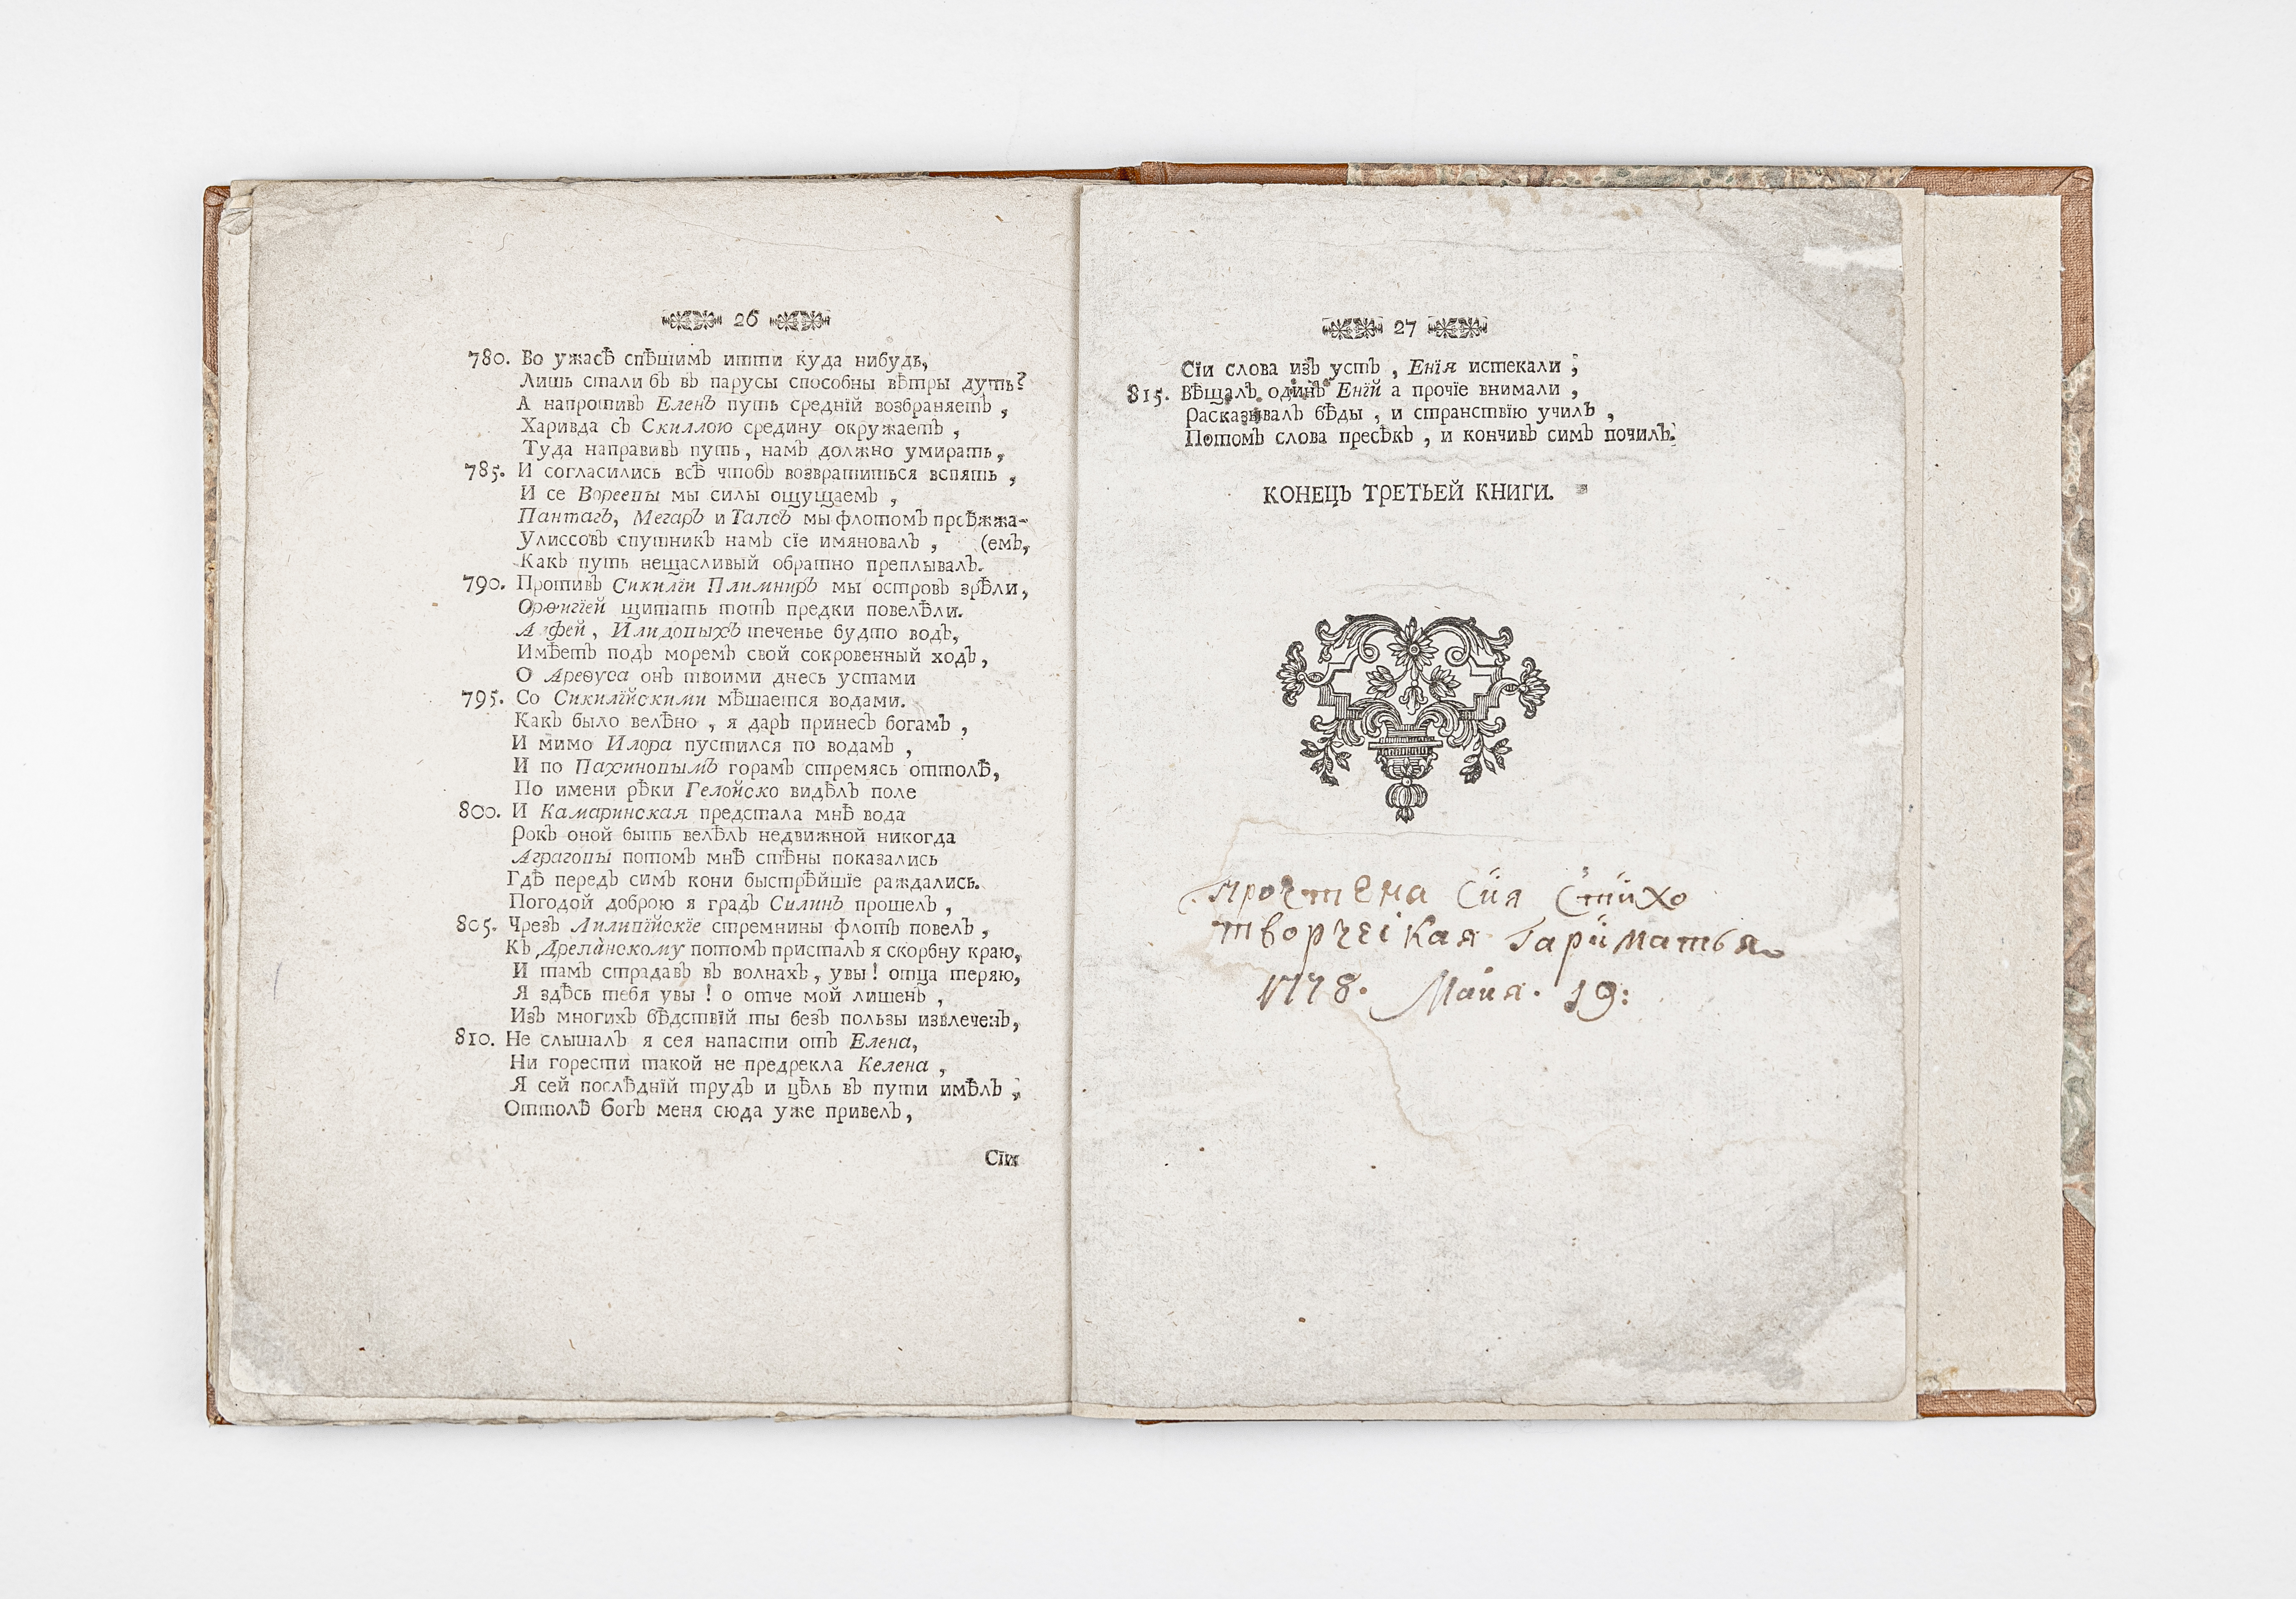 26
780. Во ужасѣ спѣшимъ итти куда нибудь,
Лишь стали бъ въ парусы способны вѣтры дуть?
А напротивъ Еленъ путь средній возбраняетъ ,
Харивда съ Скиллою средину окружаетъ ,
Туда направивъ путь, намъ должно умирать,
785. И согласились всѣ чтобъ возвратиться вспять ,
И се Вореевы мы силы ощущаемъ ,
Пантагъ, Мегаръ и Тапсъ мы флотомъ проѣжжа-
Улиссовъ спутникъ намъ сїе имяновалъ , (емъ,
Какъ путь нещасливый обратно преплывалъ.
790. Противъ Сикилїи Плимниръ мы островъ зрѣли,
Орѳигїей щитать тотъ предки повелѣли.
Алфей , Илидовыхъ теченье будто водъ,
Имѣетъ подъ моремъ свой сокровенный ходъ,
О Ареѳуса онъ твоими днесь устами
795. Со Сикилїйскими мѣшается водами.
Какъ было велѣно , я даръ принесъ богамъ ,
И мимо Илора пустился по водамъ ,
И по Пахиновымъ горамъ стремясь оттолѣ,
По имени рѣки Гелойско видѣлъ поле
800. И Камаринская предстала мнѣ вода
Рокъ оной быть велѣлъ недвижной никогда
Аграговы потомъ мнѣ стѣны показались
Гдѣ передъ симъ кони быстрѣйшїе раждались.
Погодой доброю я градъ Силинъ прошелъ ,
805. Чрезъ Лиливїйскїе стремнины флотъ повелъ ,
Къ Дрепа̀нскому потомъ присталъ я скорбну краю,
И тамъ страдавъ въ волнахъ , увы ! отца теряю,
Я здѣсь тебя увы ! о отче мой лишенъ ,
Изъ многихъ бѣдствїй ты безъ пользы извлеченъ,
810. Не слышалъ я сея напасти отъ Елена,
Ни горести такой не предрекла Келена ,
Я сей послѣднїй трудъ и цѣль въ пути имѣлъ ;
Оттолѣ богъ меня сюда уже привелъ ,
Сїи
27
Сїи слова изъ устъ , Енїя истекали ;
815. Вѣщалъ одинъ Енїй а прочїе внимали ,
Расказывалъ бѣды , и странствїю училъ ,
Потомъ слова пресѣкъ , и кончивъ симъ почилъ.
КОНЕЦЪ ТРЕТЬЕЙ КНИГИ.
прочтена Сия Стихо
творческая Гариматья
1778. Маия. 19: